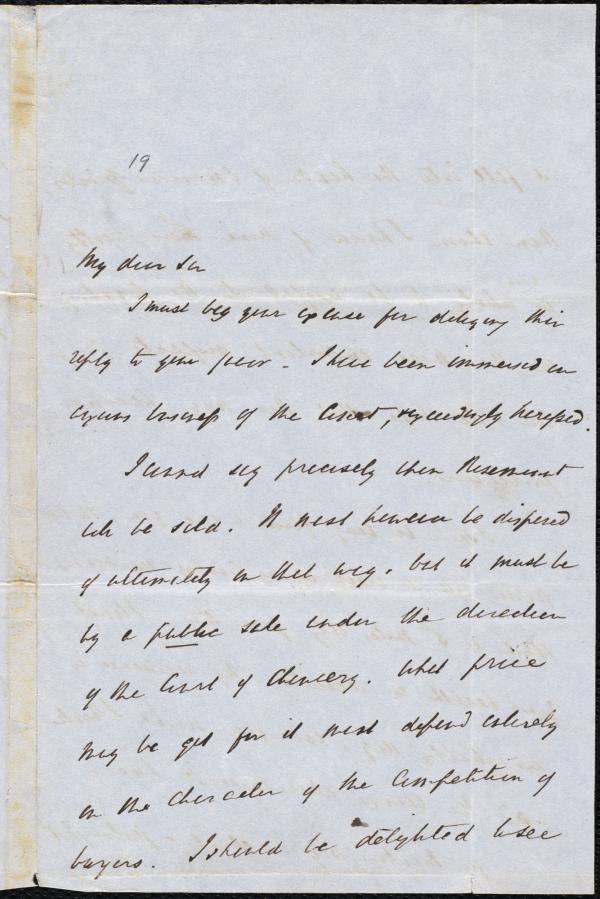 19
My dear Sir
I must beg your excuse for delaying this
reply to your favor. I have been immersed in
business of the Court, exceedingly harassed.
I cannot say precisely when Rosemount
will be sold. It must however be disposed
of ultimately in that way, but it must be
by a public sale under the direction
of the Court of Chancery. What price
may be got for it must depend entirely
on the character of the Competition of
buyers. I should be delighted to see